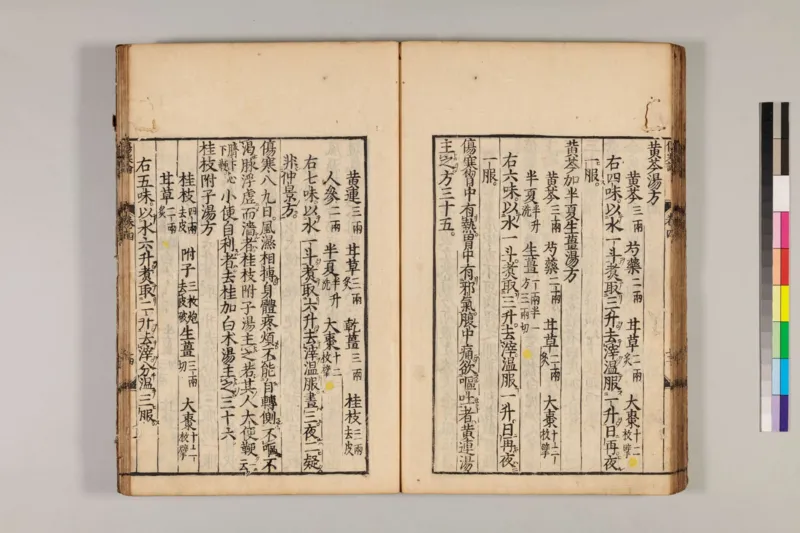 黄芩湯方
黄芩三兩 芍藥二兩 甘草二兩炙 大棗十二枚擘
右四味以水一斗煑取三升去滓温服一升日再夜
一服
黄芩加半夏生薑湯方
黄芩三兩 芍藥二兩 甘草二兩炙 大棗十二枚擘
半夏半升洗 生薑一兩半一方三兩切
右六味以水一斗煑取三升去滓温服一升日再夜
一服
傷寒胷中有熱胃中有邪氣腹中痛欲嘔吐者黄連湯
主之方三十五
黄連三兩 甘草三兩炙 乾薑三兩 桂枝三兩去皮
人參二兩 半夏半升洗 大棗十二枚擘
右七味以水一斗煑取六升去滓温服晝三夜二疑
非仲景方
傷寒八九日風濕相摶身體疼煩不能自轉側不嘔不
渇脉浮虛而濇者桂枝附子湯主之若其人大便鞕一云
臍下心下鞕小便自利者去桂加白术湯主之三十六
桂枝附子湯方
桂枝四兩去皮 附子三枚炮去皮破 生薑三兩切 大棗十二枚擘
甘草二兩炙
右五味以水六升煑取二升去滓分温三服